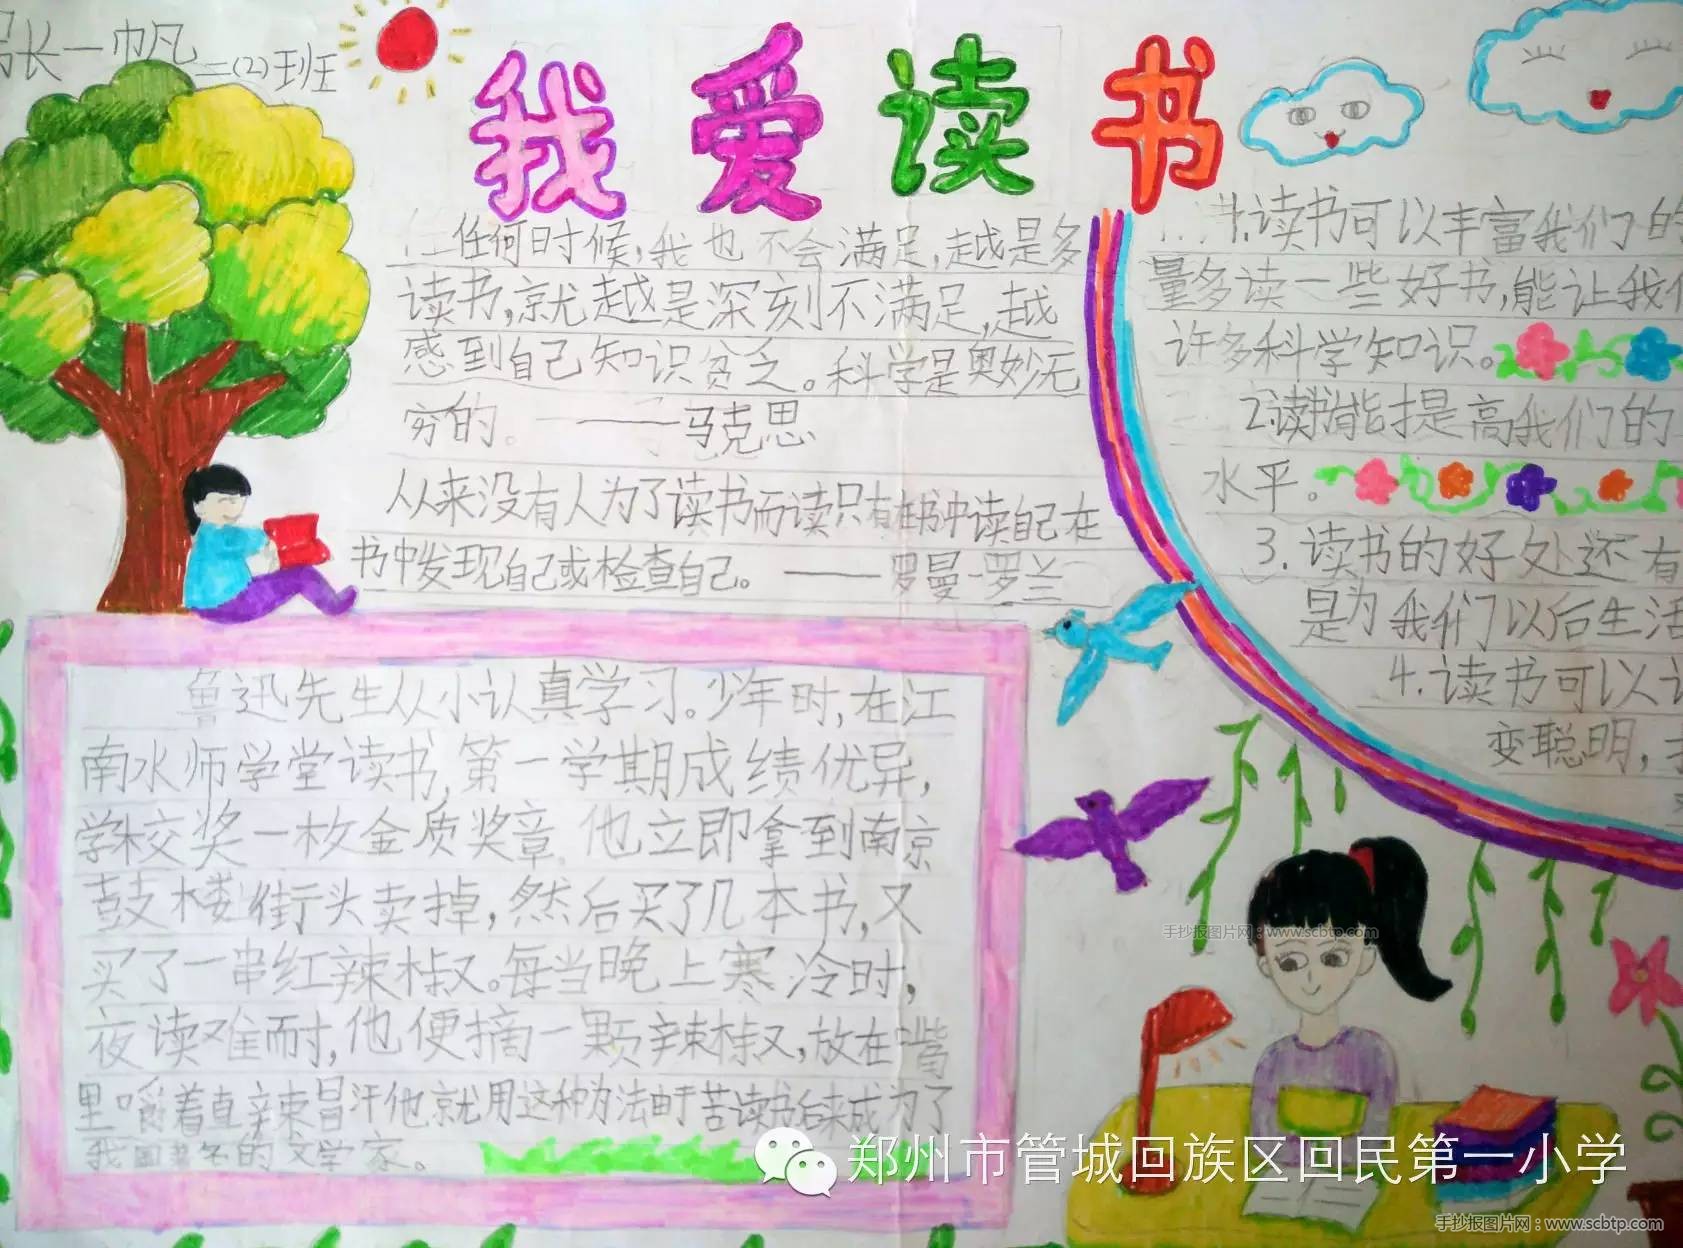 长一帆 二(2)班
我爱读书
任何时候,我也不会满足,越是多
读书,就越是深刻不满足,越
感到自己知识贫乏。科学是奥妙无
穷的。——马克思
从来没有人为了读书而读只有在书中读自己在
书中发现自己或检查自己。——罗曼-罗兰
鲁迅先生从小认真学习。少年时,在江
南水师学堂读书,第一学期成绩优异,
学校奖一枚金质奖章。他立即拿到南京
鼓楼街头卖掉,然后买了几本书,又
买了一串红辣椒。每当晚上寒冷时,
夜读难耐,他便摘一颗辣椒,放在嘴
里嚼着直辣冒汗他就用这种办法由于苦读书后来成为了
我国著名的文学家。
1.读书可以丰富我们的
量多读一些好书,能让我们
许多科学知识。
2.读书能提高我们的
水平。
3.读书的好处还有
是为我们以后生活
4.读书可以让
变聪明,
手抄报图片网：www.scbtp.com
郑州市管城回族区回民第一小学
手抄报图片网：www.scbtp.com